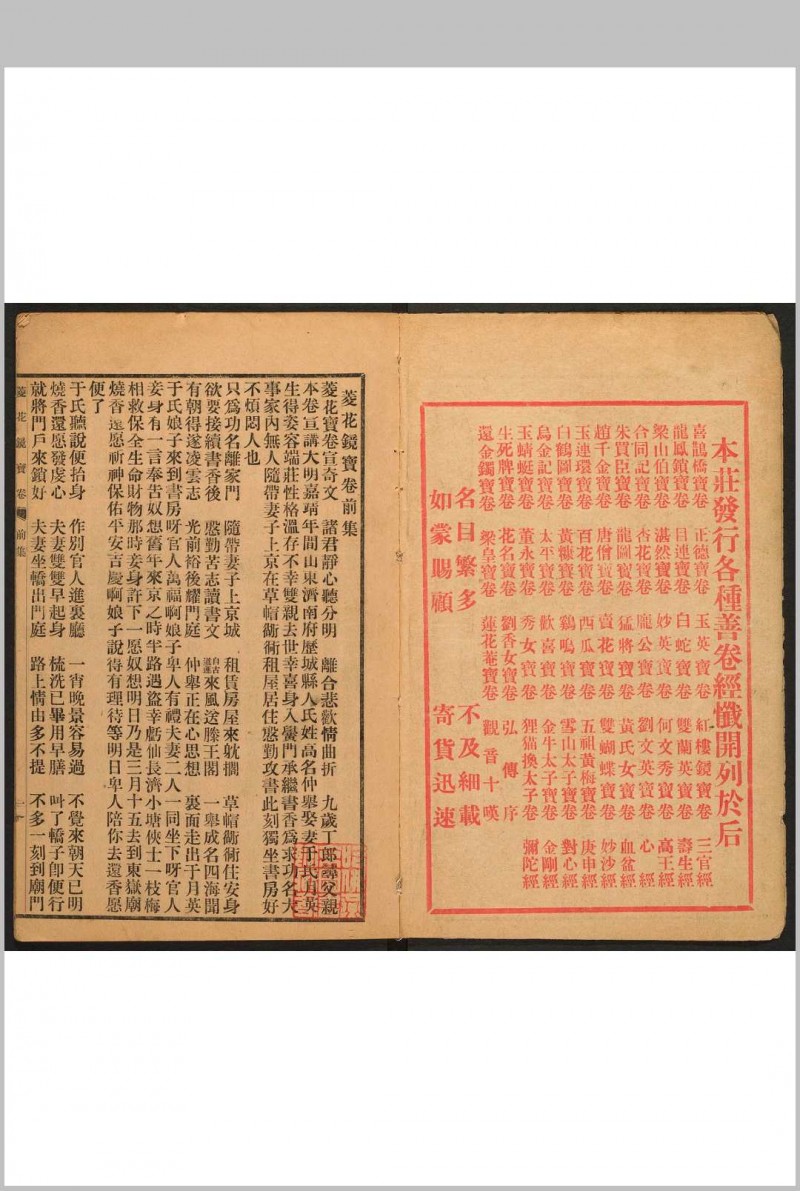 本莊發行各種善卷經懺開列於后
喜鵲橋寶卷 正德寶卷 玉英寶卷 紅樓鏡寶卷 三官經
龍鳳鎖寶卷 目連寶卷 白蛇寶卷 雙蘭英寶卷 壽生經
梁山伯寶卷 湛然寶卷 妙英寶卷 何文秀寶卷 高王經
合同記寶卷 杏花寶卷 龐公寶卷 劉文英寶卷 心經
朱買臣寶卷 龍圖寶卷 猛將寶卷 黃氏女寶卷 血盆經
趙千金寶卷 唐僧寶卷 賣花寶卷 雙蝴蝶寶卷 妙沙經
玉連環寶卷 百花寶卷 西瓜寶卷 五祖黃梅寶卷 庚申經
白鶴圖寶卷 黃糠寶卷 鷄鳴寶卷 雪山太子寶卷 對心經
烏金記寶卷 太平寶卷 歡喜寶卷 金牛太子寶卷 金剛經
玉蜻蜓寶卷 董永寶卷 秀女寶卷 狸猫換太子卷 彌陀經
生死牌寶卷 花名寶卷 劉香女寶卷 弘傳序
還金鐲寶卷 梁皇寶卷 蓮花菴寶卷 觀音十嘆
名目繁多 不及細載
如蒙賜顧 寄貨迅速
菱花鏡寶卷前集
菱花寶卷宣奇文 諸君靜心聽分明 離合悲歡情曲折 九歲工郎尋父親
本卷宣講大明嘉靖年間山東濟南府歷城縣人氏姓高名仲舉娶妻于氏月英
生得姿容端莊性格溫存不幸雙親去世幸喜身入黌門承繼書香爲求功名大
事家內無人隨帶妻子上京在草帽衚衕租屋居住慇勤攻書此刻獨坐書房好
不煩悶人也
只爲功名離家門 隨帶妻子上京城 租賃房屋來躭擱 草帽衚衕住安身
欲要接續書香後 慇勤苦志讀書文 自古道運來風送滕王閣 一舉成名四海聞
有朝得遂凌雲志 光前裕後耀門庭 仲舉正在心思想 裏面走出于月英
于氏娘子來到書房呀官人萬福啊娘子卑人有禮夫妻二人一同坐下呀官人
妾身有一言奉吿奴想舊年來京之時半路遇盜幸虧仙長濟小塘俠士一枝梅
相救保全生命財物那時妾身許下一愿奴想明日乃是三月十五去到東嶽廟
燒香還愿祈神保佑平安吉慶啊娘子說得有理待等明日卑人陪你去還香愿
便了
于氏聽說便抬身 作別官人進裏廳 一宵晚景容易過 不覺來朝天已明
燒香還愿發虔心 夫妻雙雙早起身 梳洗已畢用早膳 叫了轎子卽便行
就將門戶來鎖好 夫妻坐轎出門庭 路上情由多不提 不多一刻到廟門
菱花鏡寶卷 前集 一